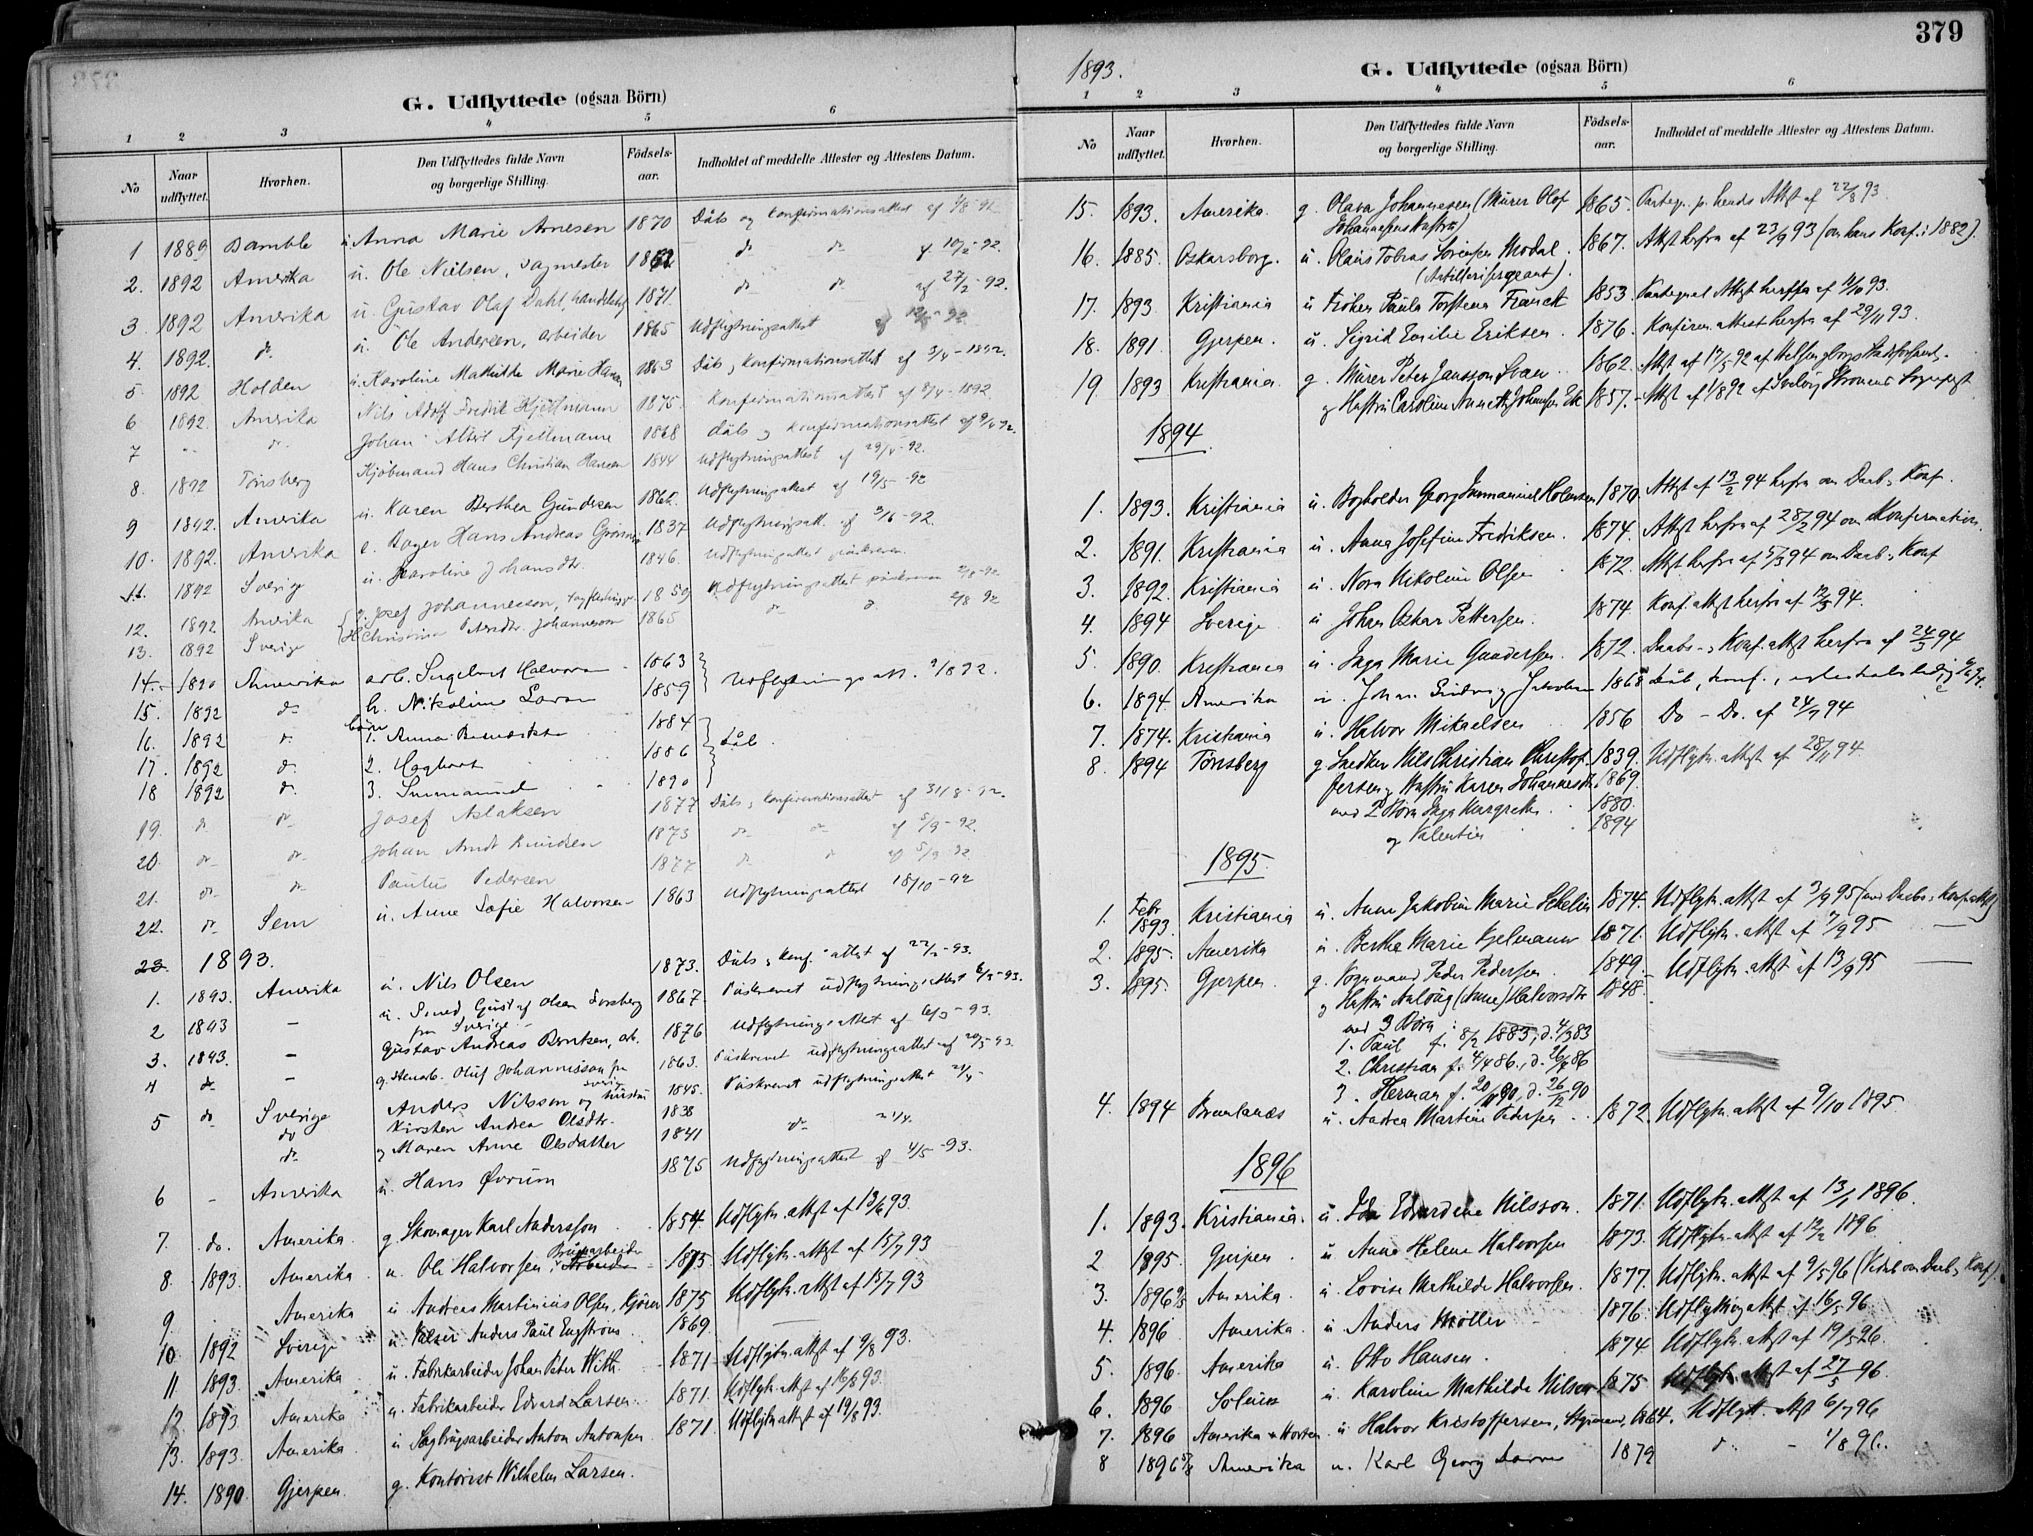 G. Udflyttede (ogsaa Börn)
1 2 3 4 5 6
No Naar udflyttet. Hvorhen. Den Udflyttedes fulde Navn og borgerlige Stilling. Födsels-aar. Indholdet af meddelte Attester og Attestens Datum.
1 1889 Bamble u. Anna Marie Arnesen 1870 Dåbs og konfirmationsattest af -92
2. 1892 Amerika u. Ole Nielsen, Sagmester do do af 10/2 -92.
3 1892 Amerika u. Gustav Olaf Dahl, 1871. do do af 27/2 -92.
4. 1892. do. u. Ole Andersen, arbeider 1865 Udflytningsattest -92
5 1892 Holden u. Karoline Mathilde Marie Hansen 1863 Dåbs, Konfirmationsattest af 3/4 - 1892.
6 1892. Amerika Nils Adolf Fredrik Kjellmann 1875. Konfirmationsattest af 8/4 - 1892
7 do. Johan Kjellmann 1868 dåbs og konfirmationsattest af 9/4 92.
8. 1892 Tönsberg Kjöbmand Hans Christian Hansen 1844 Udflytningsattest af 29/4 -92.
9 1892. Amerika u. Karen Berthea Gundersen 1865. Udflytningsattest af 19/5 -92
10. 1892. Amerika e. Bager Hans Andreas 1837 Udflytningsatt. af 3/6 -92.
11. 1892 Sverige u. Karoline Johansdt. 1846 Udflytningsattest påskreven
12. 1892. Amerika g. Josef Johannesson, 1859 Udflytningsattest påskreven -92
13. 1892 Sverige H. Christina Johanneson 1865 do do 92
14. Amerika arb. Ingebret Halvorsen 1863 Udflytningsatt. 1892.
15. 1892 do h. Nikoline 1859
16. 1892 d. börn 1. Anna 1884 Dåb.
17. 1892 d. 2. 1886
18 1892 d. 3. 1890
19. do do Josef Aslaksen 1877 Dåbs, konfirmationsattest af 31/8 -92.
20. do do Johan Arndt Knudsen 1873 do do af 5/9 -92.
21. do do Paulus Pedersen 1877 do do af 5/9 -92
22. do Sem u. Anne Sofie Halvorsen 1863 Udflytningsattest 18/10 -92
23. 1893.
1. 1893. Amerika u. Nils Olsen 1873. Dåbs, konf. attest af -93.
2 1893 — u. Gustaf Olsen Forsberg fra Sverige 1867. Påskrevet udflytningsattest -93.
3. 1893. — Gustav Andreas Berntsen, arb. 1876 Udflytningsattest af 6/3 -93.
4 do. — g. Stenarb. Oluf Johannisson fra Sverige 1863. Påskrevet udflytningsattest af 20/3 -93.
5 do Sverige Anders Nilsson og hustru 1845. Påskrevet udflytningsattest 21/4 -
do Kirsten Andrea Olsdtr. 1838
do og Maren Anne Olsdatter 1841 do 21/4.
6 - Amerika u. Hans Övrum 1875 Udflytningsattest af 4/5 -93.
7. do. Amerika. g. Skomager Karl Andersson 1854 Udflytn. attest af 13/6 93.
8. 1893. Amerika. u. Ole Halvorsen, Brugsarbeider Udflytn. attest af 15/7 93
9 Amerika u Andreas Martinius Olsen, 1875 Udflytn. attest af 15/7 93
10. 1892 Sverige u. Valser Anders Paul Engströms 1869
11. 1893. Amerika. u. Fabrikarbeider Johan Peter With. 1871 Udflytn. attest af 9/8 93.
12. 1893 Amerika. u. Fabrikarbeider Edvard Larsen. 1871. Udflytn. attest af 16/8 93.
13. 1893. Amerika. u Sagbrugsarbeider Anton Antonsen 1871. Udflytn. attest af 19/8 93.
14. 1890 Gjerpen. g. Kontorist Wilhelm Larsen.
379
1893.
G. Udflyttede (ogsaa Börn)
1 2 3 4 5 6
No Naar udflyttet. Hvorhen. Den Udflyttedes fulde Navn og borgerlige Stilling. Födsels-aar. Indholdet af meddelte Attester og Attestens Datum.
15. 1893. Amerika. g. Olava Johannesen (Murer Olaf Johannesens Hustru) 1865. Attest af 22/8 93
16. 1885. Oskarsborg. u. Olaus Tobias Sörensen Modal (Artillerisergeant). 1867. Attest herfra af 23/9 93 (om hans Konf. i 1882).
17. 1893 Kristiania u Fröken Paula Torstena Franck 1853. Attest herfra 93.
18. 1891. Gjerpen. u. Sigrid Emilie Eriksen. 1876. Konfirm. attest herfra af 29/11 93.
19 1893 Kristiania g. Murer Peter Jansson Svan 1862. Attest af 17/5 92 af Helsingborgs
og Hustru Caroline Annette Johansen Ek 1857. Attest af 1/8 92 af
1894.
1. 1893. Kristiania u. Bogholder Georg Immanuel Holmsen 1870. Attest af 13/2 94 herfra om Daab, Konf.
2. 1891. Kristiania u. Anna Josefine Fredriksen. 1874. Attest herfra af 28/2 94 om Konfirmation.
3. 1892. Kristiania u. Nora Nikoline Olsen 1872. Attest herfra af 5/3 94 om Daab, Konf
4. 1894 Sverige u Johan Oskar Pettersen. 1874. Konf. attest herfra af 94.
5. 1890. Kristiania u. Inga Marie Gundersen. 1872. Daabs-, Konf. attest herfra af 24/3 94
6. 1894. Amerika u. Johan Jakobsen 1868 Dåb, konf.,
7. 1874. Kristiania u. Halvor Mikaelsen 1856 Do - Do. af 94
8. 1894 Tönsberg g Snedker Nils Christian Christof 1839. Udflytn. attest af 28/11 94.
fersen og Hustru Karen Johannesdtr. 1869.
med 2 Börn Inga Margrethe 1880.
og Valentin 1894
1895.
1. Febr 1893. Kristiania u. Anne Jakobine Marie 1874. Udflytn. attest af 95 (med Daabs, Konf. attest)
2. 1895. Amerika u. Berthe Marie Kjelmann 1871. Udflytn. attest af 95 —
3. 1895. Gjerpen g. Vognmand Peder Pedersen 1849. Udflytn. attest af 13/9 95 —
og Hustru Aslaug (Anne) Halvorsdtr 1848.
med 3 Börn:
1. Paul f. 8/2 1883, d. 4/3 83
2. Christian f. 4/4 86, d. 86
3. Herman f. 20/11 90, d. 26/12 90
4. 1894 Brunlanæs u. Andrea Martine Pedersen 1872. Udflytn. attest af 9/10 1895
1896
1. 1893. Kristiania. u. Ida Edvardine Nilsson. 1871. Udflytn. attest af 13/1 1896.
2 1895. Gjerpen u Anne Helene Halvorsen 1873. Udflytn. attest af 12/2 1896.
3. 1896 Amerika. u. Lovise Mathilde Halvorsen. 1877. Udflytn. attest af 9/5 96 (Vidnb. om Daab, Konf.).
4. 1896 Amerika. u Anders Möller 1876. Udflytning attest af 16/5 96
5. 1896. Amerika u. Otto Hansen. 1874. Udflytn. attest af 19/5 96.
6. 1896 Solum u Karoline Mathilde Nilsen 1875 Udflytn. attest af 27/5 96.
7. 1896 Amerika Horten u. Halvor Kristoffersen, Styrmand, 1864. Udflytt. attst 6/7 96
8 1896 Amerika u. Karl Georg Larsen 1879 do - 1/8 96.